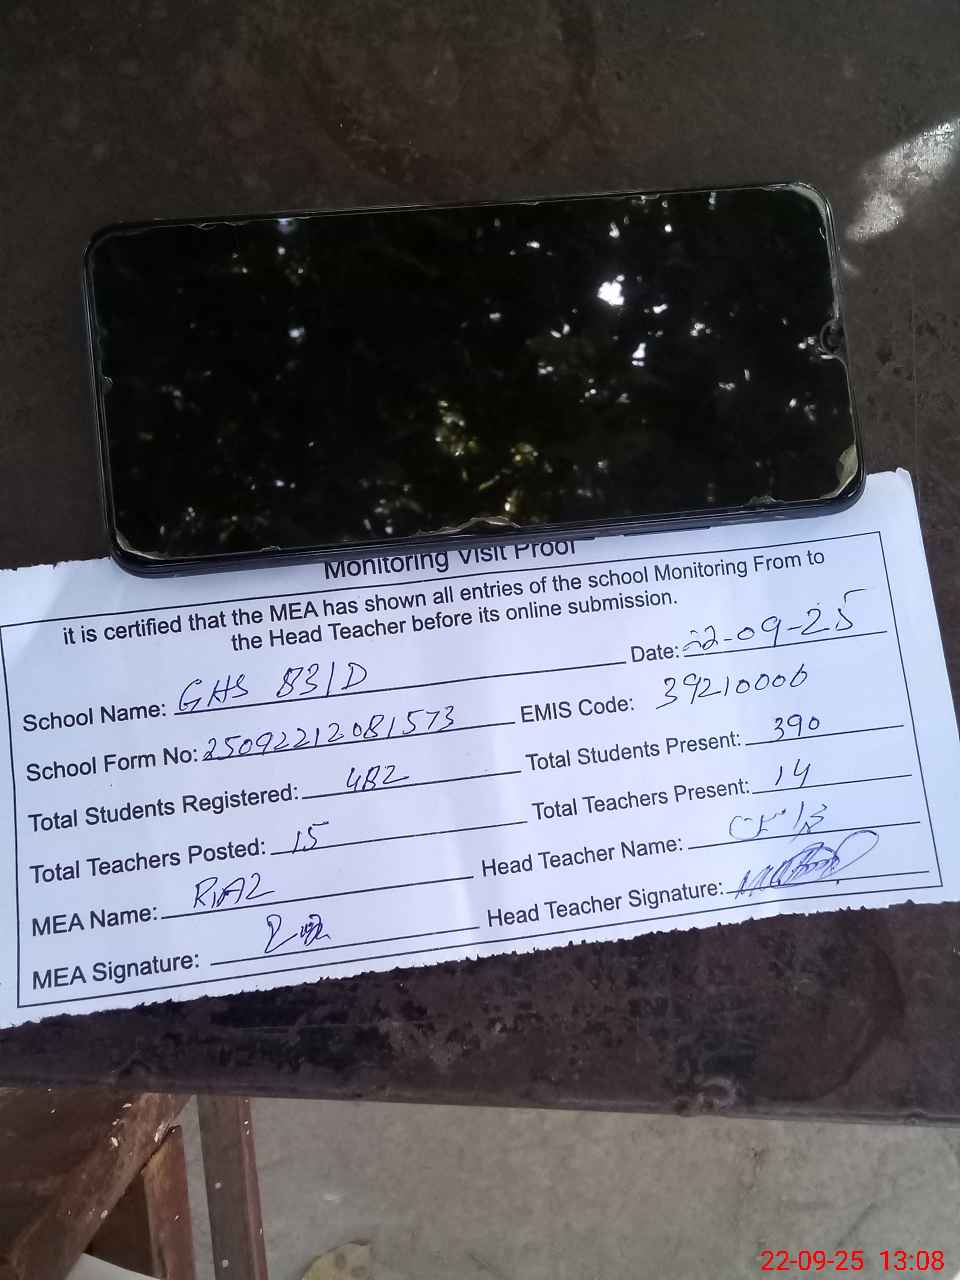 Monitoring Visit Proof
it is certified that the MEA has shown all entries of the school Monitoring From to
the Head Teacher before its online submission.
School Name: GHS 831D Date: 22-09-25
School Form No: 25092212081573 EMIS Code: 39210006
Total Students Registered: 482 Total Students Present: 390
Total Teachers Posted: 15 Total Teachers Present: 14
MEA Name: RiAZ Head Teacher Name:
MEA Signature: Head Teacher Signature:
22-09-25 13:08